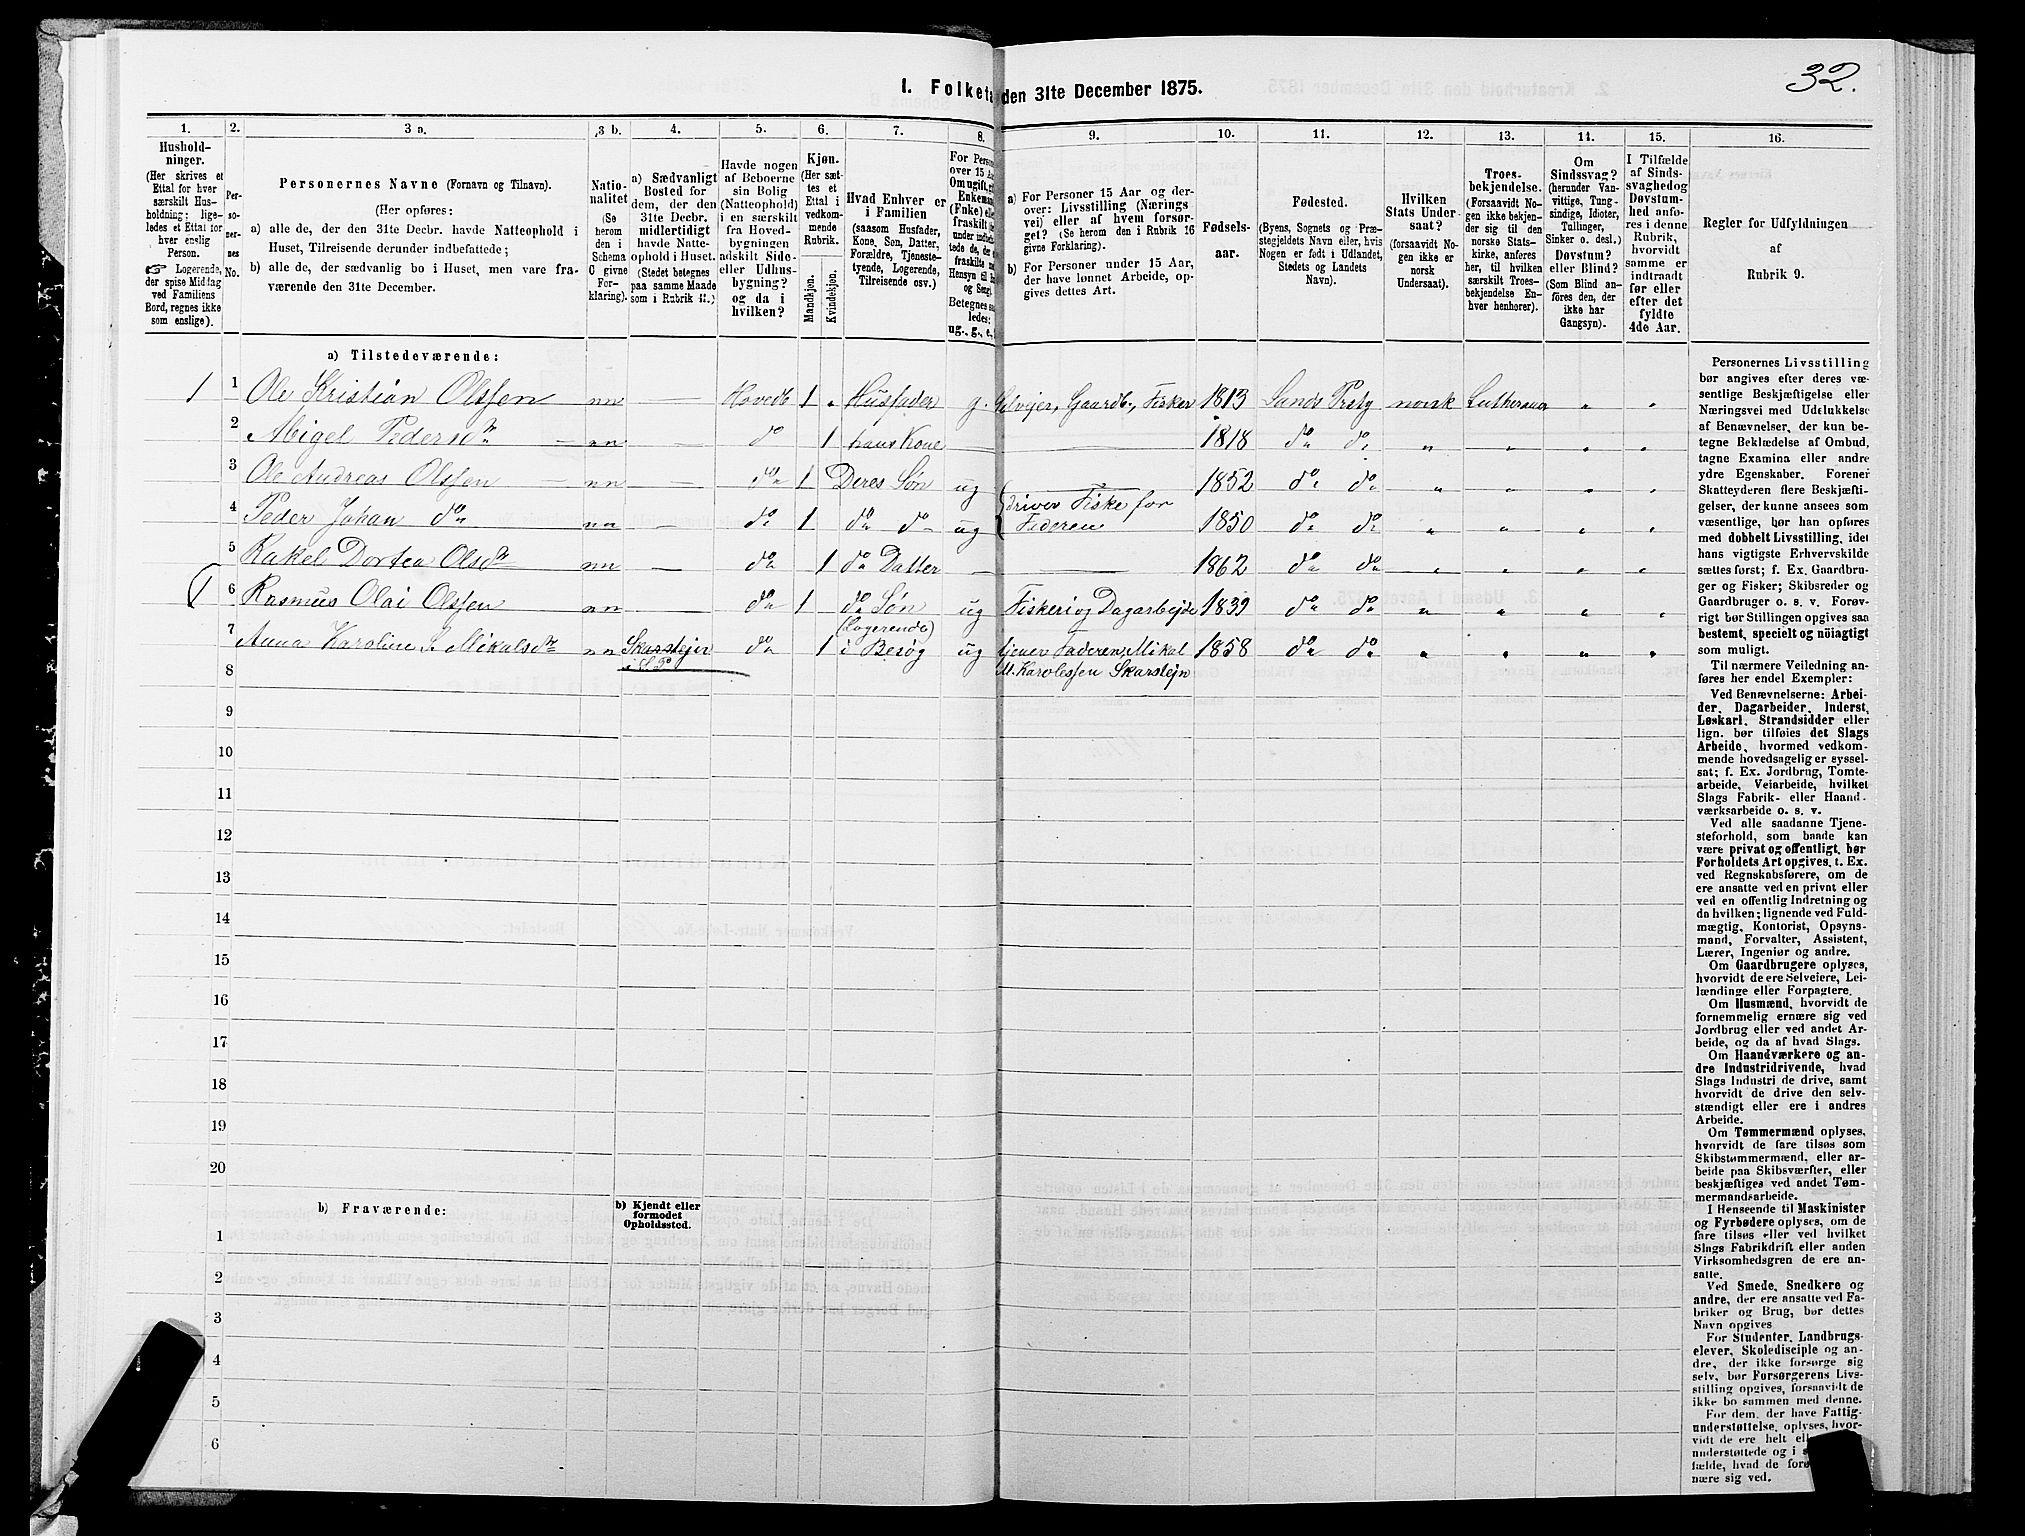 32.
I. Folketæ den 31te December 1875.
1. 2. 3 a. 3 b. 4. 5. 6. 7. 8. 9. 10. 11. 12. 13. 14. 15. 16.
Hushold-
ninger.
(Her skrives et
Ettal for hver
særskilt Hus-
holdning; lige-
ledes et Ettal for
hver enslig
Person.
☞ Logerende,
der spise Middag
ved Familiens
Bord, regnes ikke
som enslige).
Per-
so-
ner-
nes
No.
Personernes Navne (Fornavn og Tilnavn).
(Her opføres:
a) alle de, der den 31te Decbr. havde Natteophold i
Huset, Tilreisende derunder indbefattede;
b) alle de, der sædvanlig bo i Huset, men vare fra-
værende den 31te December.
Natio-
nalitet
(Se
herom
den i
Schema
C givne
For-
klaring).
a) Sædvanligt
Bosted for
dem, der den
31te Decbr.
midlertidigt
havde Natte-
ophold i Huset.
(Stedet betegnes
paa samme Maade
som i Rubrik 11.)
Havde nogen
af Beboerne
sin Bolig
(Natteophold)
i en særskilt
fra Hoved-
bygningen
adskilt Side-
eller Udhus-
bygning?
og da i
hvilken?
Kjøn.
(Her sæt-
tes et
Ettal i
vedkom-
mende
Rubrik.
Mandkjøn.
Kvindekjøn.
Hvad Enhver er
i Familien
(saasom Husfader,
Kone, Søn, Datter,
Forældre, Tjeneste-
tyende, Logerende,
Tilreisende osv.)
For Perso
over 15 A
Om ugift, g
Enkeman
(Enke) elle
fraskilt
Betegnes saa
ledes:
ug., g., e.,
a) For Personer 15 Aar og der-
over: Livsstilling (Nærings
vei) eller af hvem forsør-
get? (Se herom den i Rubrik 16
givne Forklaring).
b) For Personer under 15 Aar,
der have lønnet Arbeide, op-
gives dettes Art.
Fødsels-
aar.
Fødested.
(Byens, Sognets og Præ-
stegjeldets Navn eller, hvis
Nogen er født i Udlandet,
Stedets og Landets
Navn).
Hvilken
Stats Under-
saat?
(forsaavidt No-
gen ikke er
norsk
Undersaat).
Troes-
bekjendelse.
(Forsaavidt No-
gen ikke bekjen-
der sig til den
norske Stats-
kirke, anføres
her, til hvilken
særskilt Troes-
bekjendelse En-
hver henhører).
Om
Sindssvag?
(herunder Van-
vittige, Tung-
sindige, Idioter,
Tullinger,
Sinker o. desl.)
Døvstum?
eller Blind?
(Som Blind an-
føres den, der
ikke har
Gangsyn).
I Tilfælde
af Sinds-
svaghed og
Døvstum-
hed anfø-
res i denne
Rubrik,
hvorvidt
samme er
indtraadt
før eller
efter det
fyldte
4de Aar.
Regler for Udfyldningen
af
Rubrik 9.
a) Tilstedeværende:
1 1 Ole Kristian Olssen nn — Hovedb 1 „ Husfader g. Selvejer, Gaardb., Fisker 1813 Sands Prstg norsk Lutheraner „ „
2 Abigel Pedersdr nn — do 1 hans Kone — 1818 do do „ „ „ „
3 Ole Andreas Olssen nn — do 1 Deres Søn ug driver Fiske for 1852 do do „ „ „ „
4 Peder Johan do nn — do 1 do do ug Faderen 1850 do do „ „ „ „
5 Rakel Dortea Olsdr nn — do 1 do Datter — 1862 do do „ „ „ „
(1 6 Rasmus Olai Olssen nn do 1 do Søn ug Fiskeri og Dagarbejde 1839 do do „ „ „ „
(Logerende)
7 Anna Karoline S. Mikalsdr nn Skarstejn do 1 i Besøg ug tjener Faderen, Mikal 1858 do do „ „ „ „
i S. P. M. Karolessen Skarstejn
8
9
10
11
12
13
14
15
16
17
18
19
20
b) Fraværende:
b) Kjendt eller
formodet
Opholdssted.
1
2
3
4
5
6
Personernes Livsstilling
bør angives efter deres væ-
sentlige Beskjæftigelse eller
Næringsvei med Udelukkelse
af Benævnelser, der kun be-
tegne Beklædelse af Ombud,
tagne Examina eller andre
ydre Egenskaber. Forener
Skatteyderen flere Beskjæfti-
gelser, der kunne ansees som
væsentlige, bør han opføres
med dobbelt Livsstilling, idet
hans vigtigste Erhvervskilde
sættes først; f. Ex. Gaardbru-
ger og Fisker; Skibsreder og
Gaardbruger o. s. v. Forøv-
rigt bør Stillingen opgives saa
bestemt, specielt og nøiagtigt
som muligt.
Til nærmere Veiledning an-
føres her endel Exempler:
Ved Benævnelserne: Arbei-
der, Dagarbeider, Inderst,
Løskarl, Strandsidder eller
lign. bør tilføies det Slags
Arbeide, hvormed vedkom-
mende hovedsagelig er syssel-
sat; f. Ex. Jordbrug, Tomte-
arbeide, Veiarbeide, hvilket
Slags Fabrik- eller Haand-
værksarbeide o. s. v.
Ved alle saadanne Tjene-
steforhold, som baade kan
være privat og offentligt, bør
Forholdets Art opgives, t. Ex.
ved Regnskabsførere, om de
ere ansatte ved en privat eller
ved en offentlig Indretning og
da hvilken; lignende ved Fuld-
mægtig, Kontorist, Opsyns-
mand, Forvalter, Assistent,
Lærer, Ingeniør og andre.
Om Gaardbrugere oplyses,
hvorvidt de ere Selveiere, Lei-
lændinge eller Forpagtere.
Om Husmænd, hvorvidt de
fornemmelig ernære sig ved
Jordbrug eller ved andet Ar-
beide, og da af hvad Slags.
Om Haandværkere og an-
dre Industridrivende, hvad
Slags Industri de drive, samt
hvorvidt de drive den selv-
stændigt eller ere i andres
Arbeide.
Om Tømmermænd oplyses,
hvorvidt de fare tilsøs som
Skibstømmermænd, eller ar-
beide paa Skibsværfter, eller
beskjæftiges ved andet Tøm-
mermandsarbeide.
I Henseende til Maskinister
og Fyrbødere oplyses, om de
fare tilsøs eller ved hvilket
Slags Fabrikdrift eller anden
Virksomhedsgren de ere an-
satte.
Ved Smede, Snedkere og
andre, der ere ansatte ved Fa-
briker og Brug, bør dettes
Navn opgives
For Studenter, Landbrugs-
elever, Skoledisciple og an-
dre, der ikke forsørge sig
selv, bør Forsørgerens Livs-
stilling opgives, forsaavidt de
ikke bo sammen med denne.
For dem, der have Fattig-
understøttelse, oplyses, hvor-
vidt de ere helt el
understøttede og i s
fælde, hvad de for
nære sig ved.